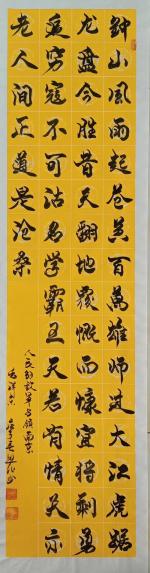 钟山風雨起苍黄百萬雄师过大江虎踞
龙盘今胜昔天翻地覆慨而慷宜将剩勇
追穷寇不可沽名学霸王天若有情天亦
老人间正道是沧桑
人民解放军占领南京